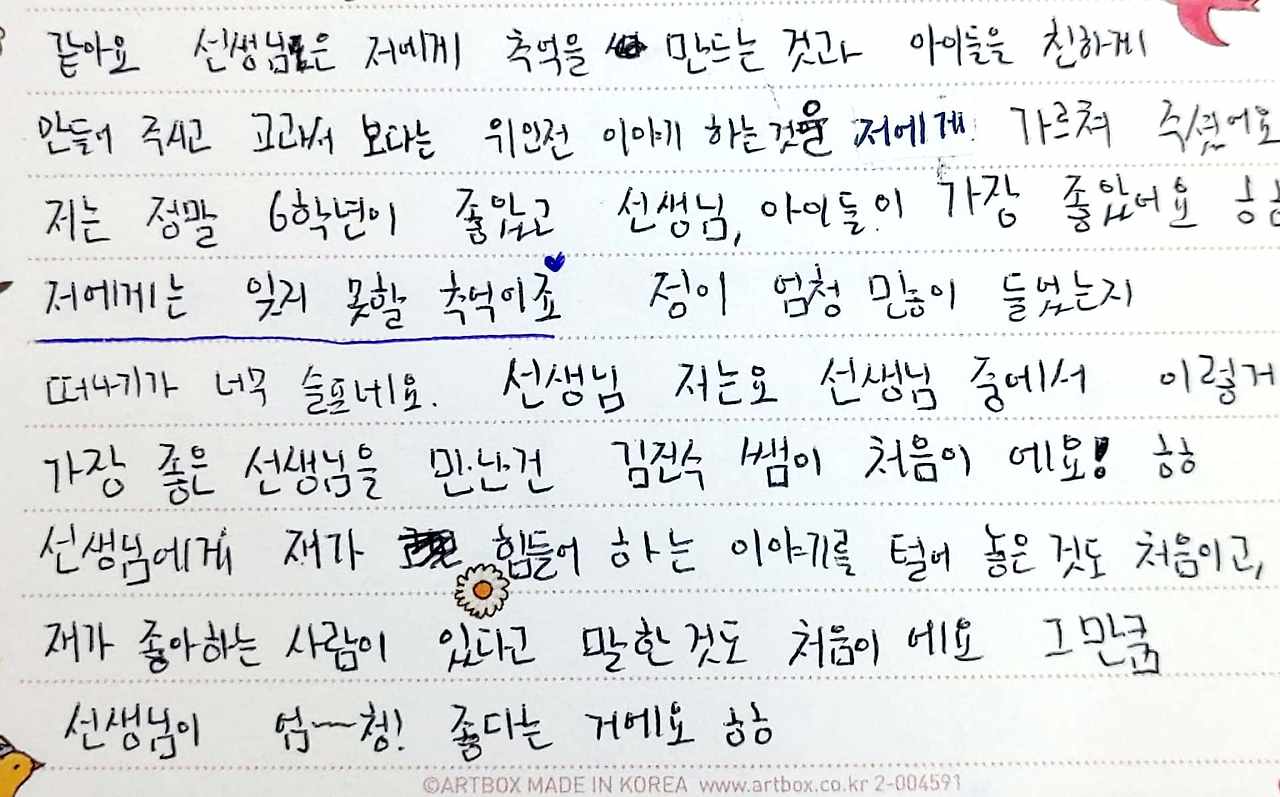 같아요 선생님은 저에게 추억을 만드는 것과 아이들을 친하게
만들어 주시고 교과서 보다는 위인전 이야기 하는것을 저에게 가르쳐 주셨어요
저는 정말 6학년이 좋았고 선생님, 아이들이 가장 좋았어요 ㅎㅎ
저에게는 잊지 못할 추억이죠 정이 엄청 많이 들었는지
떠나기가 너무 슬프네요. 선생님 저는요 선생님 중에서 이렇게
가장 좋은 선생님을 만난건 김진수 쌤이 처음이 에요! ㅎㅎ
선생님에게 재가 힘들어 하는 이야기를 털어 놓은 것도 처음이고,
재가 좋아하는 사람이 있다고 말한 것도 처음이 에요 그만큼
선생님이 엄~청! 좋다는 거에요 ㅎㅎ
©ARTBOX MADE IN KOREA www.artbox.co.kr 2-004591